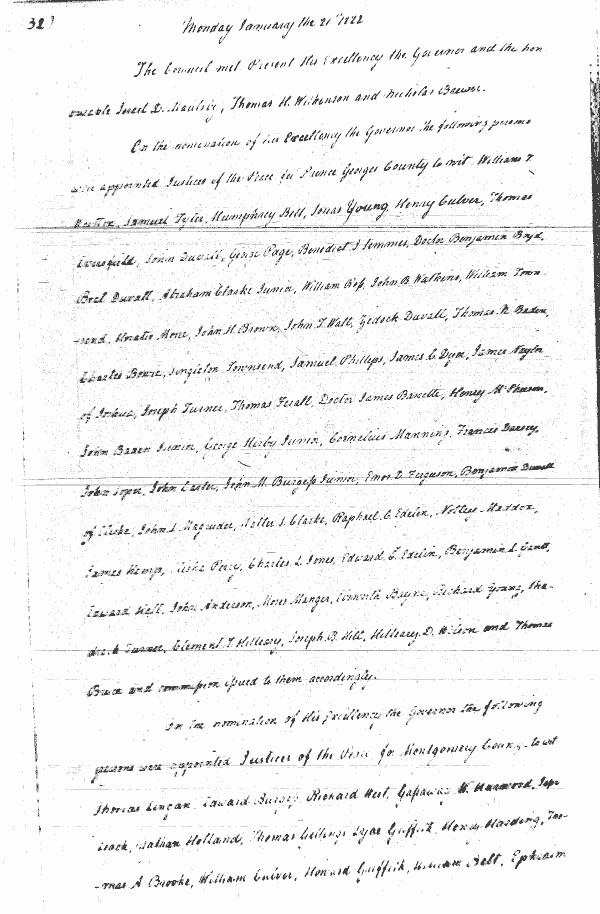 32)
Monday January the 21st 1822
The Council met Present His Excellency the Governor and the hon-
ourable Israel D. Maulsby, Thomas H. Wilkinson and Nicholas Brewer.
On the nomination of his Excellency the Governor the following persons
were appointed Justices of the Peace for Prince Georges County to wit William T
Samuel Tyler, Humphrey Belt, Jonas Young, Henry Culver, Thomas
John Duvall, George Page, Benedict I Semmes, Doctor Benjamin Boyd,
Beal Duvall, Abraham Clarke Junior, William Ross, John B. Watkins, William Town-
-send, Horatio More, John H. Brown, John T. Wall, Zedock Duvall, Thomas N. Baden,
Charles Bowie, Singleton Townsend, Samuel Phillips, James C. Dyer, James Naylor
of Joshua, Joseph Turner, Thomas Ferall, Doctor James Harvey McPherson,
John Baden Junior, George Kirby Junior, Cornelius Manning, Frances Darsey,
John Soper, John Carter, John M. Burgess Junior, Enos D. Ferguson, Benjamin Duvall
of Elisha, John S. Magruder, Walter S. Clarke, Raphael C. Edelin, Notley Maddox,
James Kemp, Elisha Perry, Charles L. Jones, Edward C. Edelin, Benjamin L. Gantt,
Edward Hall, John Anderson, Moses Richard Young, Sha-
-drack Turner, Clement T. Hilleary, Joseph B. Hill, Hilleary D. Wilson and Thomas
Bruce and commission issued to them accordingly.
On the nomination of His Excellency the Governor the following
persons were appointed Justices of the Peace for Montgomery County to wit
Thomas Lingan, Edward Burgess, Richard West, Gassaway W. Harwood,
Nathan Holland, Thomas Gittings, Lyde Griffith, Henry Harding, Tho-
-mas A. Brooke, William Culver, Howard Griffith, William Belt, Ephraim